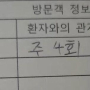 방문객 정보
환자와의 관
주 4회